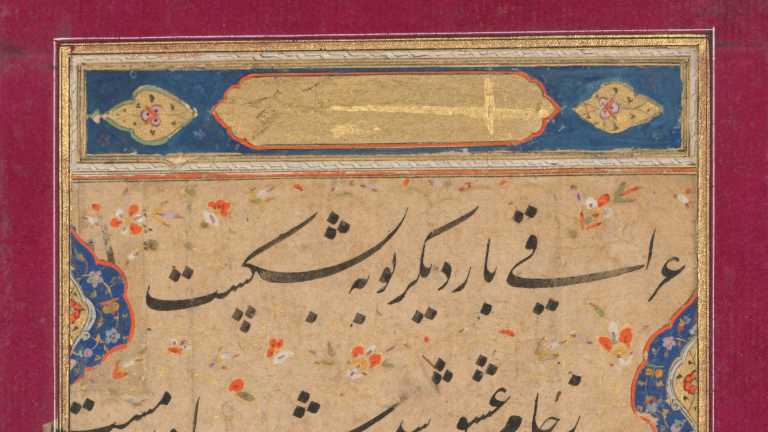 عراقی بار دیگر توبه بشکست
ز جام عشق شد مست